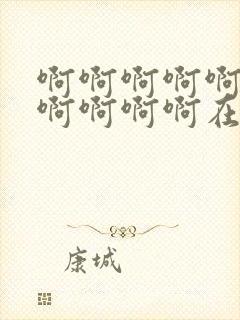 啊啊啊啊啊
啊啊啊啊在
康城